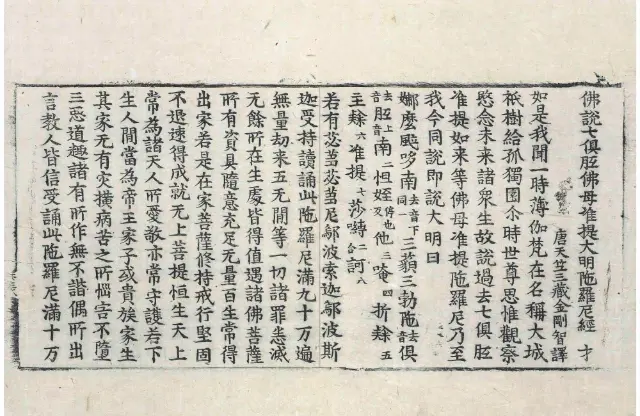 佛說七俱胝佛母准提大明陁羅尼經 才
唐天竺三藏金剛智譯
如是我聞一時薄伽梵在名稱大城
祇樹給孤獨園尒時世尊思惟觀察
愍念未來諸衆生故說過去七俱胝
准提如來等佛母准提陁羅尼乃至
我今同說即說大明曰
娜麽颯哆南去音下同一三藐三勃陁去音俱
去音胝上音南二怛姪也他三唵四折隸五
主隸六准提七莎嚩二合訶八
若有苾蒭苾蒭尼鄔波索迦鄔波斯
迦受持讀誦此陁羅尼滿九十万遍
無量劫來五无間等一切諸罪悉滅
无餘所在生處皆得值遇諸佛菩薩
所有資具隨意充足无量百生常得
出家若是在家菩薩修持戒行堅固
不退速得成就无上菩提恒生天上
常為諸天人所愛敬亦常守護若下
生人間當為帝王家子或貴族家生
其家无有灾橫病苦之所惱害不墮
三惡道趣諸有所作無不諧偶所出
言教人皆信受誦此陁羅尼滿十万